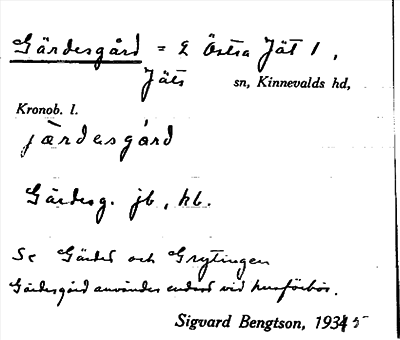 Gärdesgård = 2 Östra Jät 1,
Jäts sn, Kinnevalds hd,
Kronob. l.
jærdesgård
Gärdesg. jb, hb.
Se Gärdet och Grytingen
Gärdesgård användes endast vid husförhör.
Sigvard Bengtson, 1935